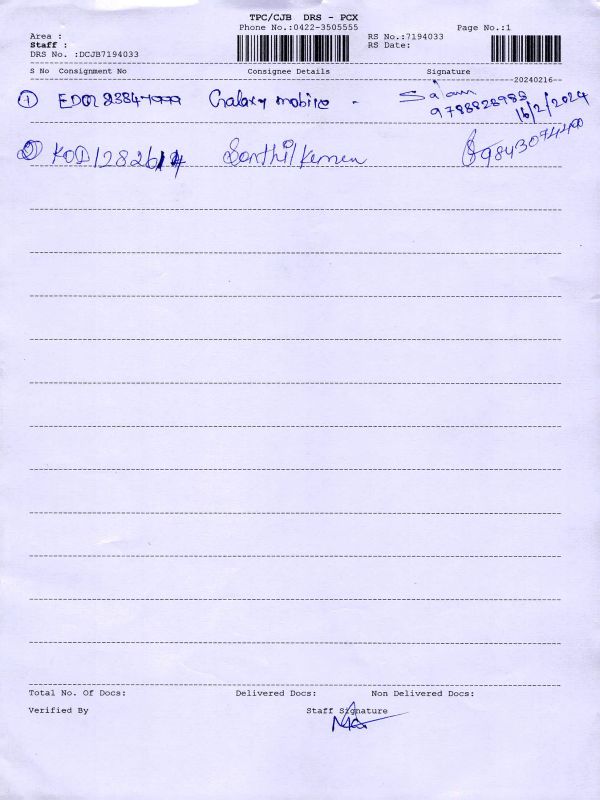 TPC/CJB DRS - PCX
Phone No.:0422-3505555
Page No.:1
Area :
RS No.:7194033
Staff :
RS Date:
DRS No. :DCJB7194033
S No Consignment No Consignee Details Signature
20240216
1 Galaxy mobile - Salam
9788828988
16/2/2024
2 KOD1282614 Santhil Kumen
Total No. Of Docs: Delivered Docs: Non Delivered Docs:
Verified By Staff Signature